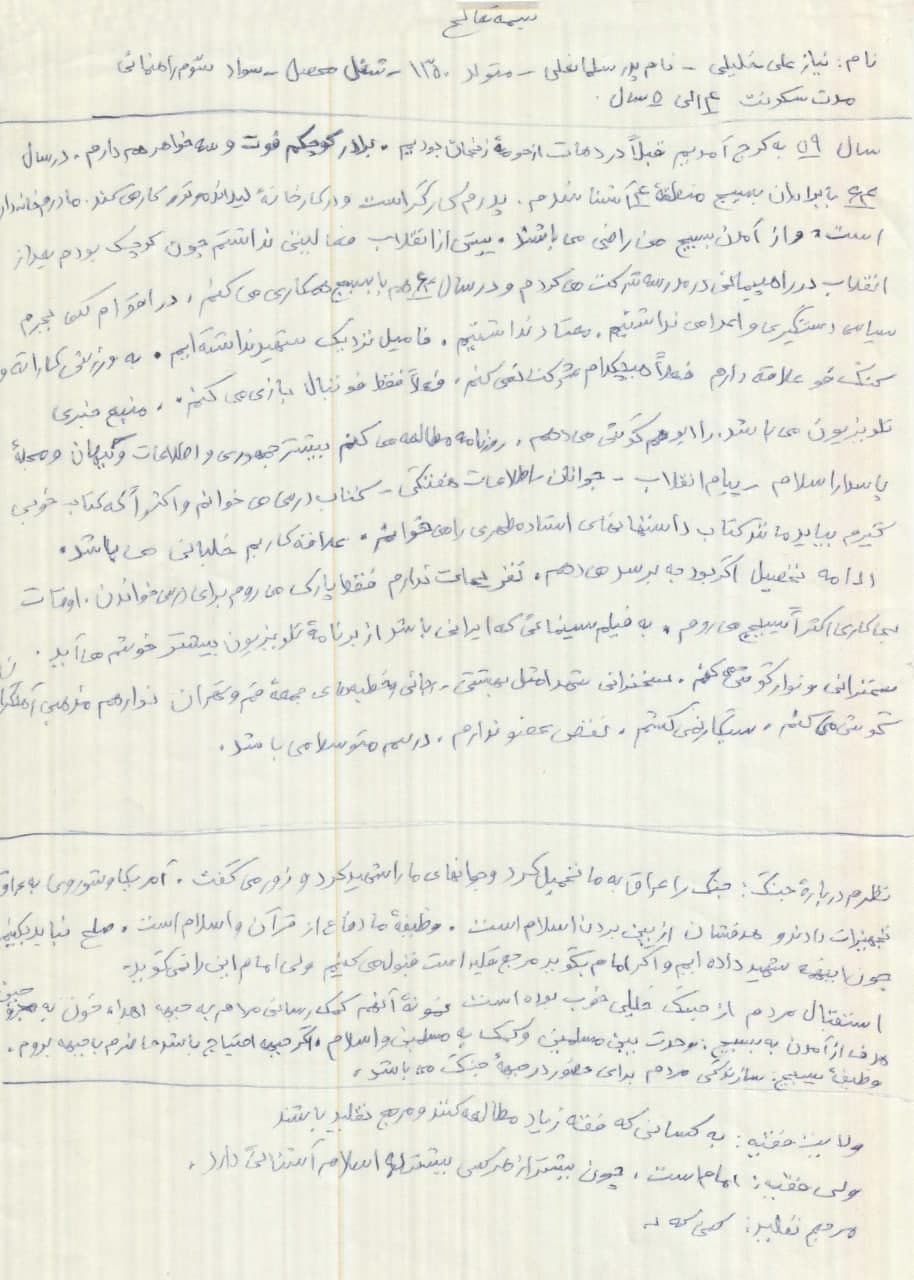 بسمه تعالی
نام: نیاز علی خلیلی - نام پدر سلمانعلی - متولد ۱۳۵۰ - شغل محصل - سواد سوم راهنمائی
مدت سکونت ۴ الی ۵ سال.
سال ۵۹ به کرج آمدیم قبلاً در دهات از حومهٔ زنجان بودیم. برادر کوچکم فوت و سه خواهر هم دارم. در سال
۶۴ با برادران بسیج منطقهٔ ۴ آشنا شدم. پدرم کارگر است و در کارخانهٔ لیلاند موتور کار می کند. مادرم خانه دار
است. و از آمدن بسیج من راضی می باشد. پیش از انقلاب فعالیتی نداشتم چون کوچک بودم بعد از
انقلاب در راهپیمائی در مدرسه شرکت می کردم و در سال ۶۴ هم با بسیج همکاری می کنم. در اقوام کسی بجرم
سیاسی دستگیری و اعدامی نداشتیم. معتاد نداشتیم. فامیل نزدیک شهید نداشته ایم. به ورزش کاراته و
کنگ فو علاقه دارم فعلاً هیچکدام شرکت نمی کنم. فعلاً فقط فوتبال بازی می کنم. منبع خبری
تلویزیون می باشد. رادیو هم گوش می دهم. روزنامه مطالعه می کنم بیشتر جمهوری و اطلاعات و کیهان و مجلهٔ
پاسدار اسلام - پیام انقلاب - جوانان - اطلاعات هفتگی - کتاب درسی می خوانم و اکثراً که کتاب خوبی
گیرم بیاید مانند کتاب داستانهای استاد مطهری را می خوانم. علاقه کاریم خلبانی می باشد.
ادامه تحصیل اگر بود به برسد می دهم. تفریحات ندارم فقط پارک می روم برای درس خواندن. اوقات
بیکاری اکثراً بسیج می روم. به فیلم سینمائی که ایرانی باشد از برنامهٔ تلویزیون بیشتر خوشم می آید.
سخنرانی و نوار گوش می کنم. سخنرانی شهدا مثل بهشتی - رجائی و خطبه های جمعهٔ قم و تهران نوار هم مذهبی آهنگران
گوش می کنم. سیگار نمی کشم. نقص عضو ندارم. درسم متوسط می باشد.
نظرم دربارهٔ جنگ: جنگ را عراق به ما تحمیل کرد و جوانهای ما را شهید کرد و زور می گفت. آمریکا و شوروی به عراق
تجهیزات دادند و هدفشان از بین بردن اسلام است. وظیفهٔ ما دفاع از قرآن و اسلام است. صلح نباید بکنیم
چون اینهمه شهید داده ایم و اگر امام بگوید مرجع تقلید است قبول می کنیم ولی امام این را نمی گوید.
استقبال مردم از جنگ خیلی خوب بوده است نمونهٔ آنهم کمک رسانی مردم به جبهه اهداء خون به
هدف از آمدن به بسیج: وحدت بین مسلمین و کمک به مسلمین و اسلام. اگر جبهه احتیاج باشد حاضرم با جبهه بروم.
وظیفهٔ بسیج: سازندگی مردم برای حضور در جبههٔ جنگ می باشد.
ولایت فقیه: به کسانی که فقه زیاد مطالعه کنند و مرجع تقلید باشند
ولی فقیه: امام است. چون بیشتر از هر کسی بیشتر به اسلام آشنائی دارد.
مرجع تقلید: کسی که